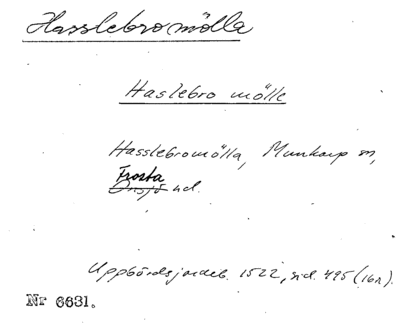 Hasslebromölla
Haslebro mölle
Hasslebromölla, Munkarp sn,
Frosta
Onsjö hd.
Uppbördsjordeb. 1522, sid. 495 (16n).
Nr 6631.